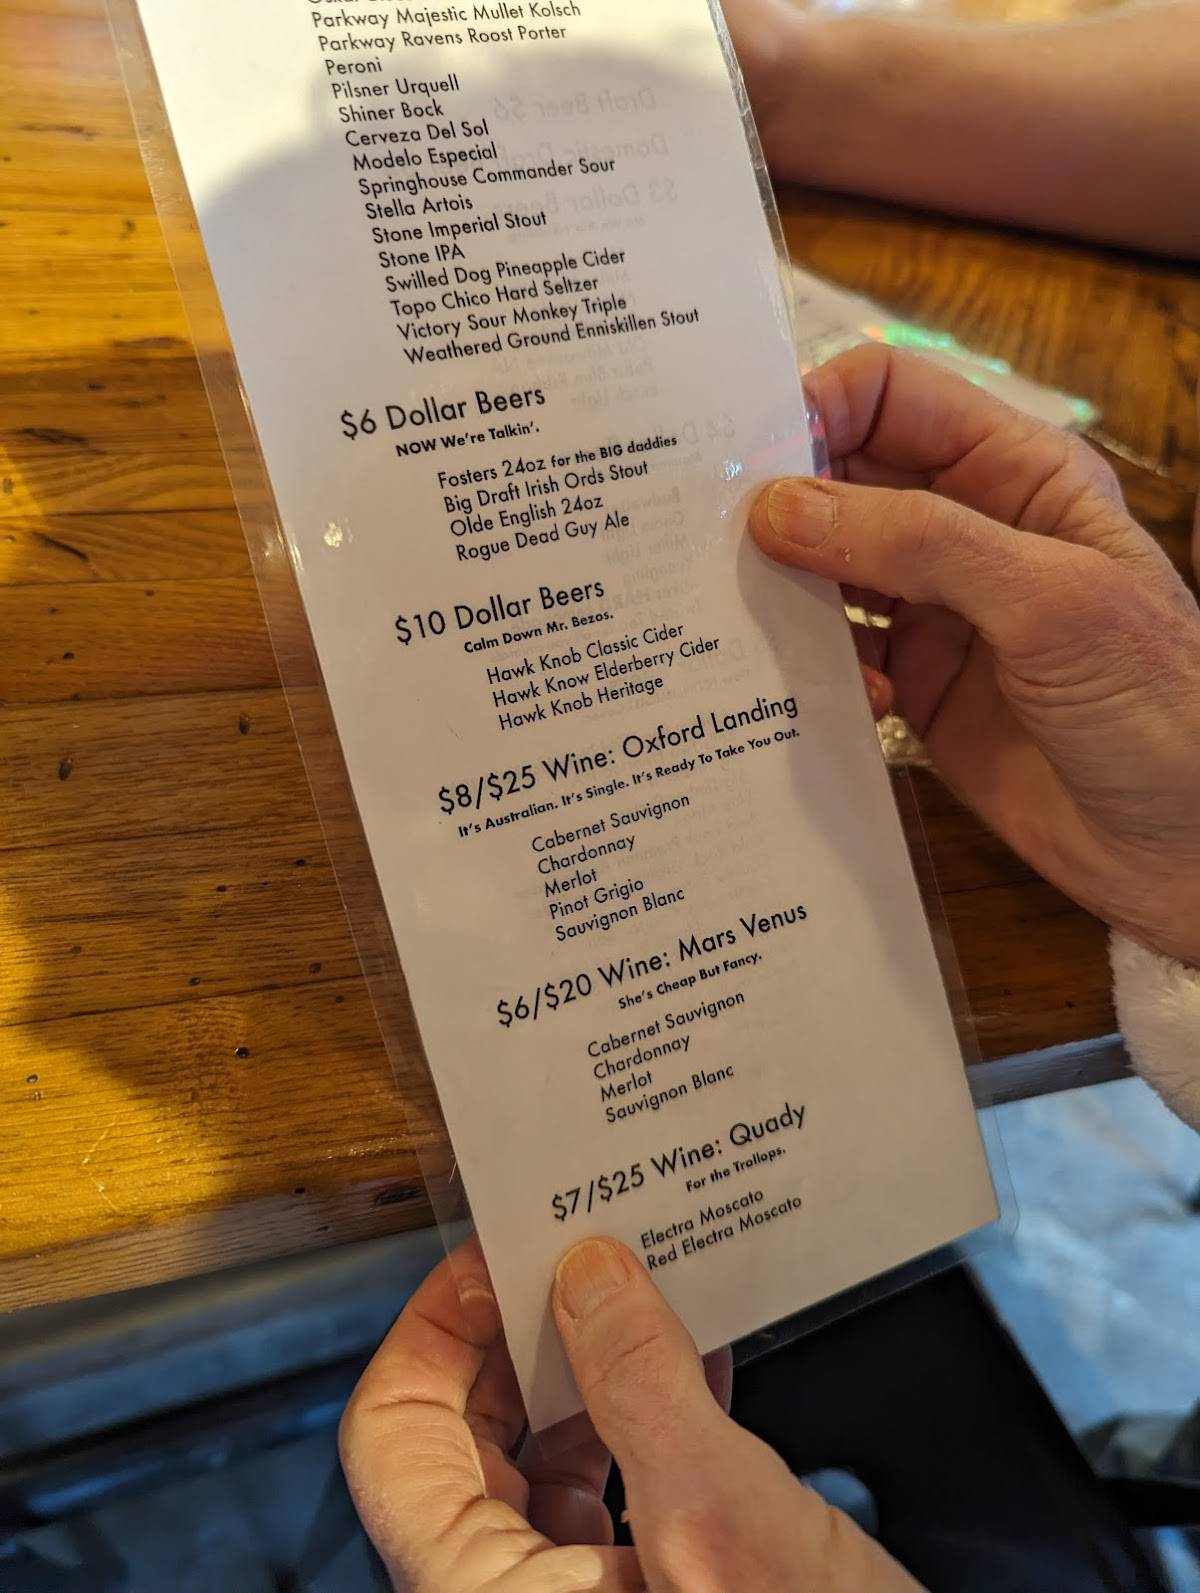 Parkway Majestic Mullet Kolsch
Parkway Ravens Roost Porter
Peroni
Pilsner Urquell
Shiner Bock
Cerveza Del Sol
Modelo Especial
Springhouse Commander Sour
Stella Artois
Stone Imperial Stout
Stone IPA
Swilled Dog Pineapple Cider
Topo Chico Hard Seltzer
Victory Sour Monkey Triple
Weathered Ground Enniskillen Stout
$6 Dollar Beers
NOW We're Talkin'.
Fosters 24oz for the BIG daddies
Big Draft Irish Ords Stout
Olde English 24oz
Rogue Dead Guy Ale
$10 Dollar Beers
Calm Down Mr. Bezos.
Hawk Knob Classic Cider
Hawk Know Elderberry Cider
Hawk Knob Heritage
$8/$25 Wine: Oxford Landing
It's Australian. It's Single. It's Ready To Take You Out.
Cabernet Sauvignon
Chardonnay
Merlot
Pinot Grigio
Sauvignon Blanc
$6/$20 Wine: Mars Venus
She's Cheap But Fancy.
Cabernet Sauvignon
Chardonnay
Merlot
Sauvignon Blanc
$7/$25 Wine: Quady
For the Trollops.
Electra Moscato
Red Electra Moscato